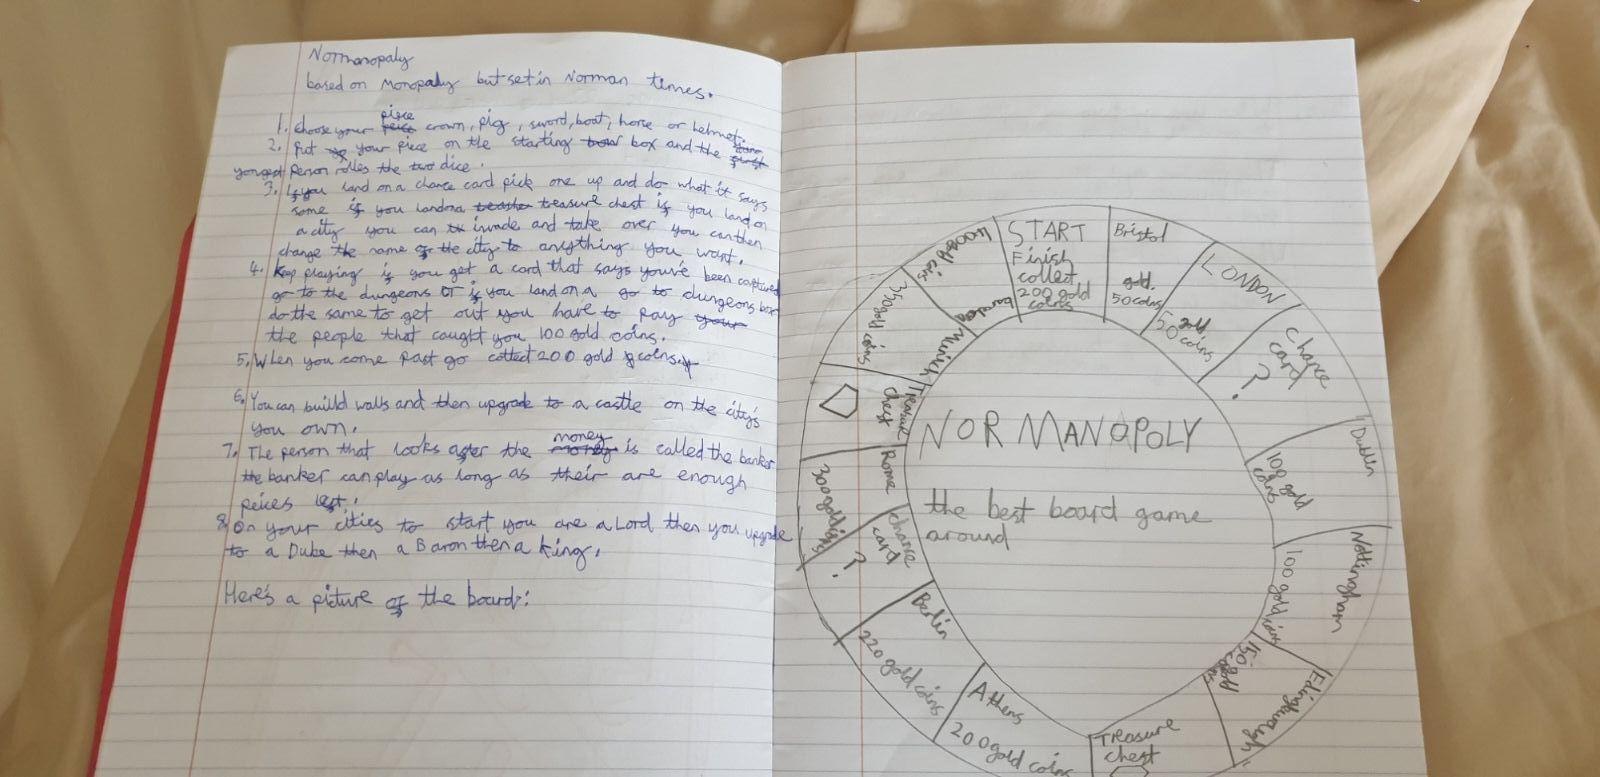 Normanopaly
based on Monopaly but set in Norman times.
1. choose your piece crown, pig, sword, boat, horse or helmet.
2. Put your piece on the starting box and the
yongest Person rolles the two dice.
3. If you land on a chance card pick one up and do what it says
same if you land on a treasure chest if you land on
a city you can invade and take over you can then
change the name of the city to anything you want.
4. Keep playing if you get a card that says you've been captured
go to the dungeons or if you land on a go to dungeons box
do the same to get out you have to pay
the people that caught you 100 gold coins.
5. When you come past go collect 200 gold coins.
6. You can build walls and then upgrade to a castle on the city's
you own.
7. The person that looks after the money is called the banker
the banker can play as long as their are enough
peices left.
8. On your cities to start you are a Lord then you upgrade
to a Duke then a Baron then a king.
Here's a picture of the board:
START
Finish
collect
200 gold
coins
Bristol
gold
50 coins
LONDON
50 gold
coins
chance
card
?
Dublin
100 gold
coins
Nottingham
100 gold coins
Edingbuurgh
150 gold
coins
Treasure
chest
Athens
200 gold coins
Berlin
220 gold coins
chance
card
?
Rome
300 gold coins
chest
Munich
350 gold coins
400 gold coins
NORMANOPOLY
the best board game
around